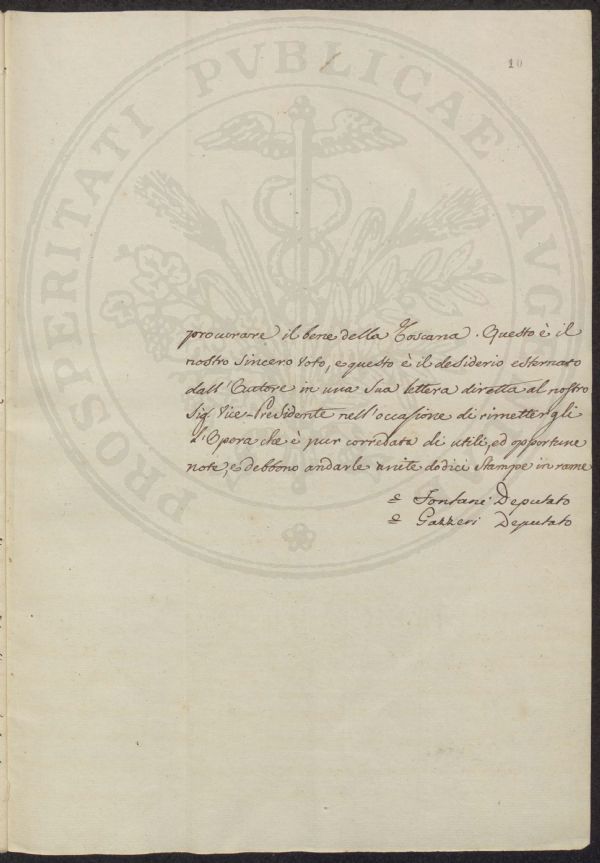 10
PROSPERITATI PVBLICAE AVG
procurare il bene della Toscana. Questo è il
nostro sincero Voto, e questo è il desiderio esternato
dall'Autore in una Sua lettera diretta al nostro
Sig Vice-Presidente nell'occasione di rimettergli
l'Opera che è pur corredata di utili, ed opportune
note, e debbono andarle unite dodici stampe in rame
Fontani Deputato
Gazzeri Deputato